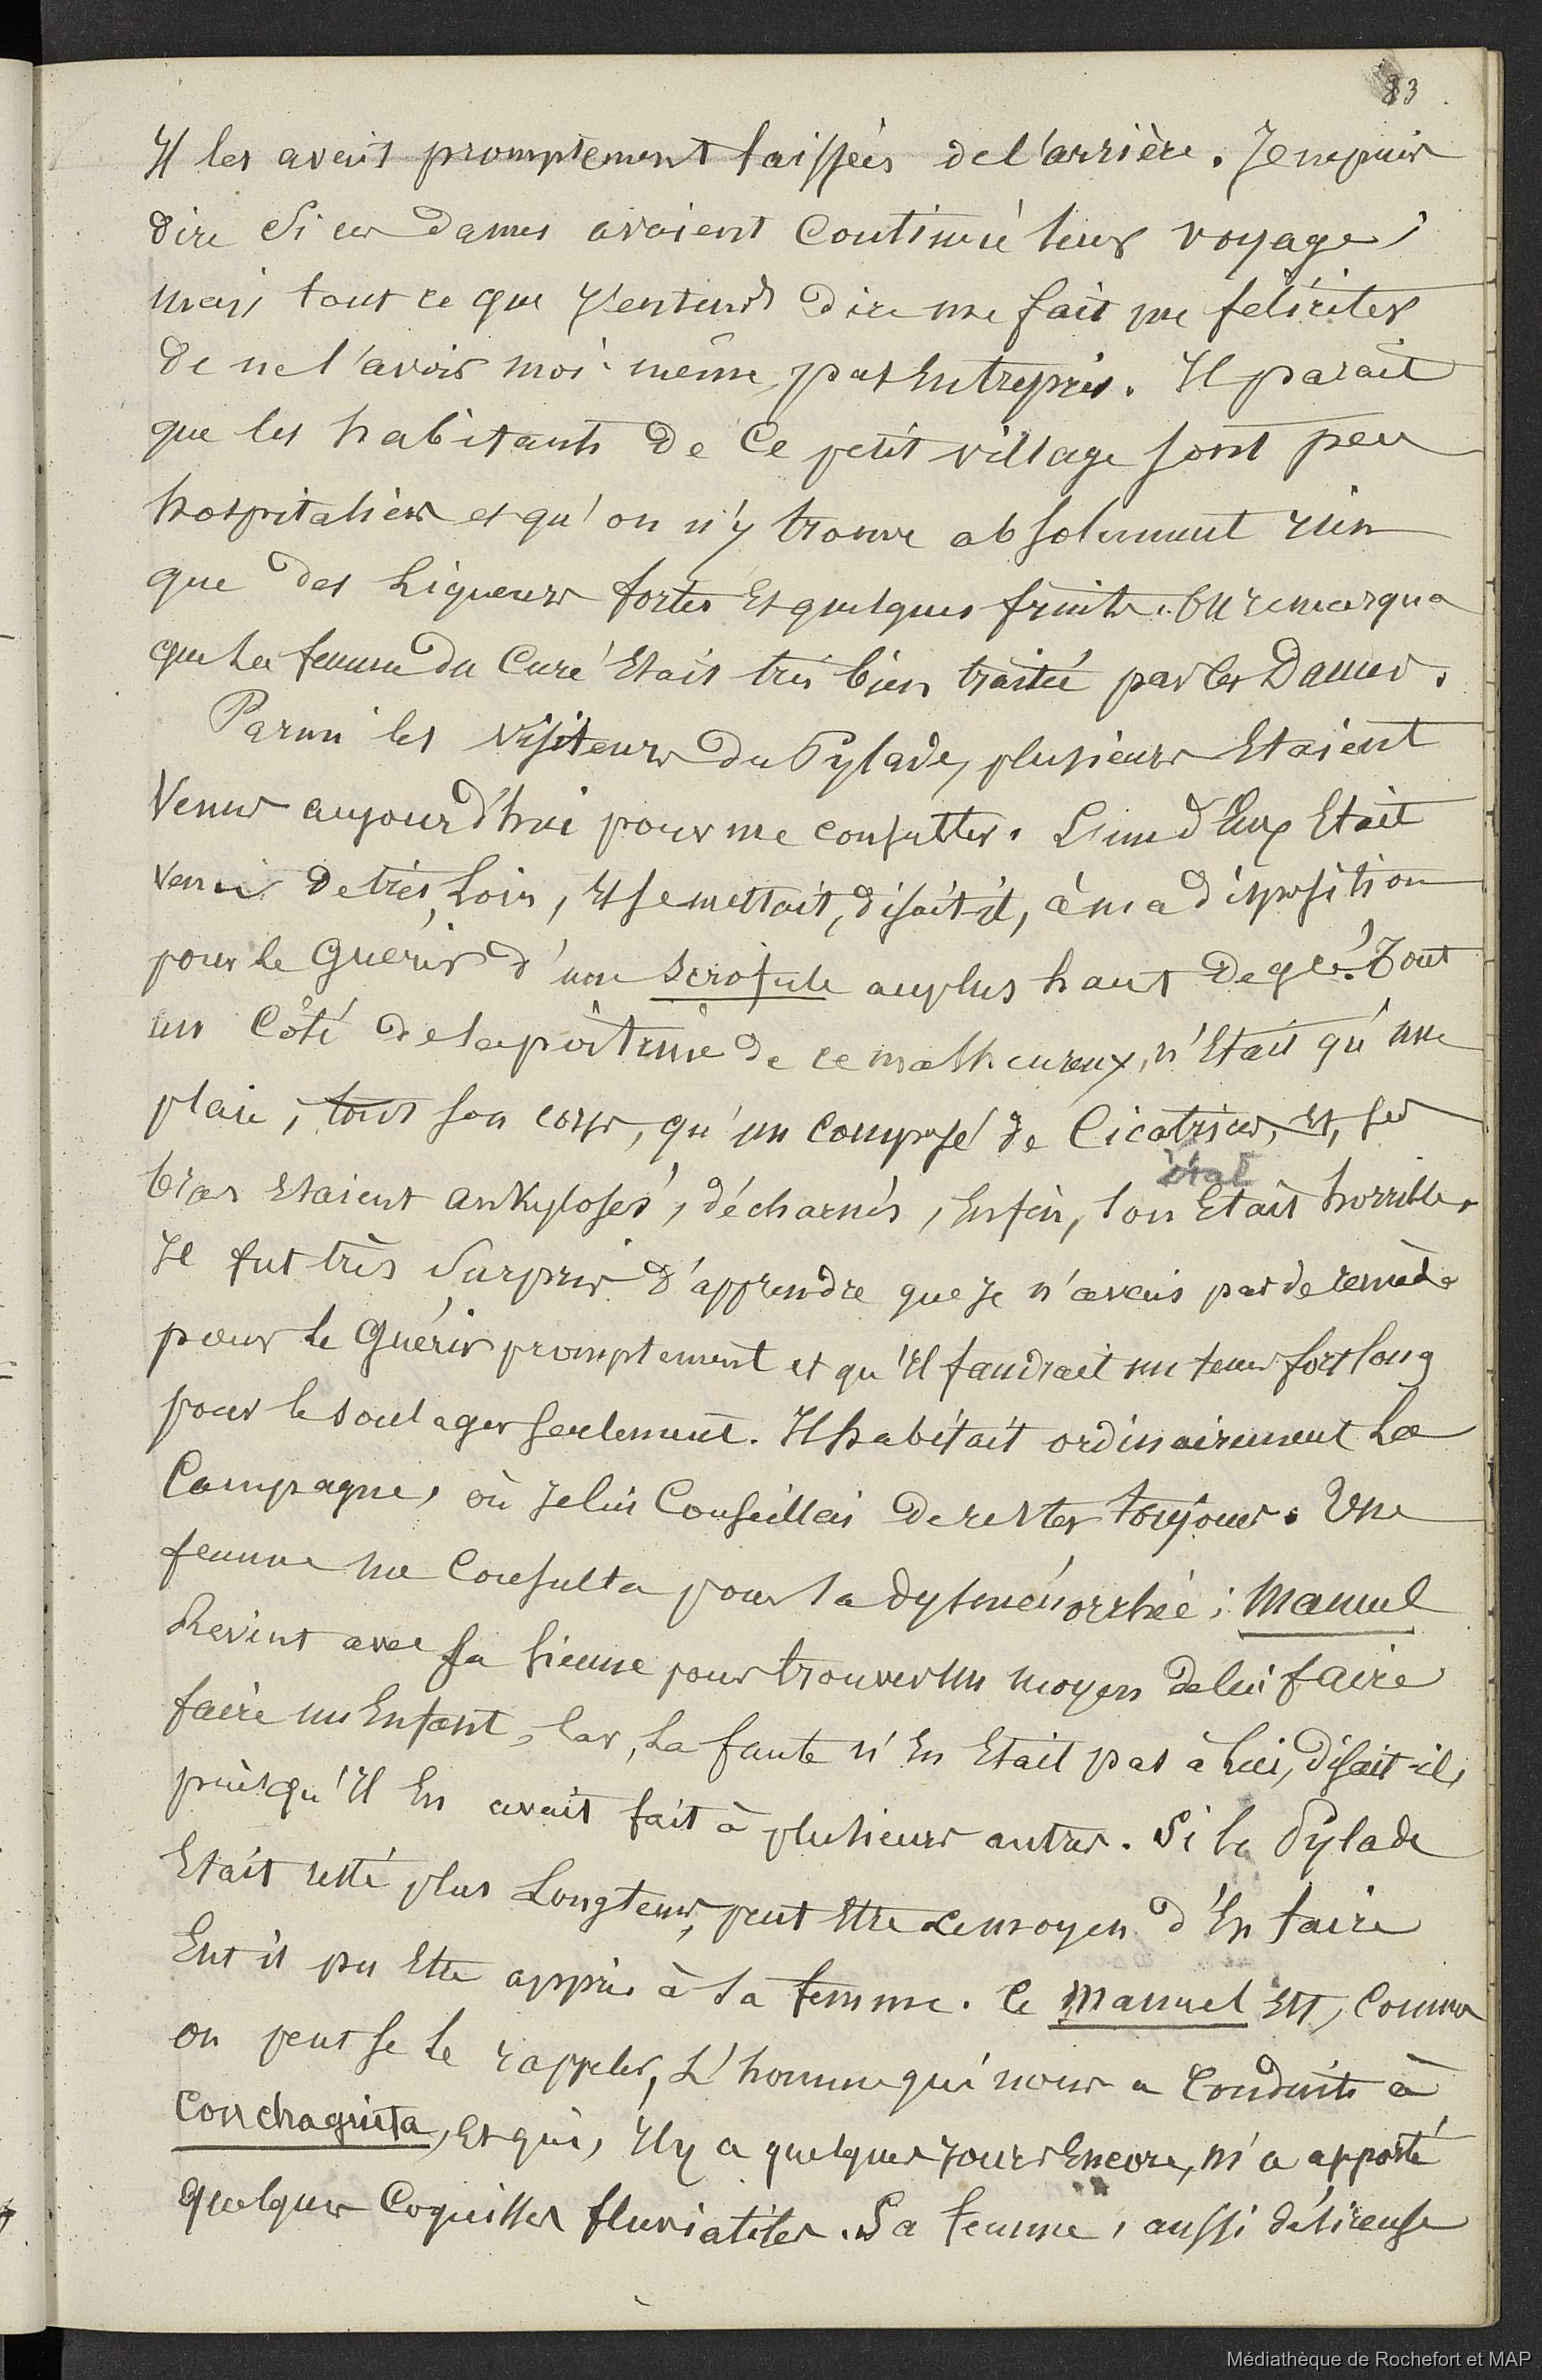 83
Il les avait promptement laissées de l'arrière. Je ne puis
dire si ces dames avaient continué leur voyage;
mais tout ce que j'entends dire me fait me féliciter
de ne l'avoir moi-même, pas Entrepris. Il parait
que les habitants de ce petit village sont peu
hospitaliers et qu'on n'y trouve absolument rien
que des liqueurs fortes Et quelques fruits. On remarqua
que la femme du Curé Etait très bien traitée par les Dames.
Parmi les visiteurs du Pylade, plusieurs Etaient
Venus aujourd'hui pour me consulter. L'un d'Eux Etait
venu de très Loin, Et se mettait, disait-il, à ma disposition
pour le Guérir d'une Scrofule au plus haut degré. Tout
un Côté de la poitrine de ce malheureux, n'Etait qu'une
plaie, tout son corps, qu'un composé de Cicatrices, Et, ses
bras Etaient ankylosés, décharnés, Enfin, son Etait horrible.
état
Il fut très Surpris d'apprendre que je n'avais pas de remède
pour le Guérir promptement et qu'Il faudrait un tems fort long
pour le soulager seulement. Il habitait ordinairement La
Campagne, où Je lui Conseillai de rester toujours. Une
femme me Consulta pour sa dysménorrhée; Manuel
Revint avec la sienne pour trouver un moyen de lui faire
faire un Enfant, Car, La faute n'En Etait pas à lui, disait-il,
puisqu'Il En avait fait à plusieurs autres. Si le Pylade
Etait resté plus Longtems, peut Etre Le moyen d'En faire
Eut il pu Etre appris à sa femme. Ce Manuel Est, Comme
on peut se le rappeler, L'homme qui nous a Conduits à
Conchaguita, Et qui, Il y a quelques Jours Encore, m'a apporté
Quelques Coquilles fluviatiles. Sa femme, aussi désireuse
Médiathèque de Rochefort et MAP